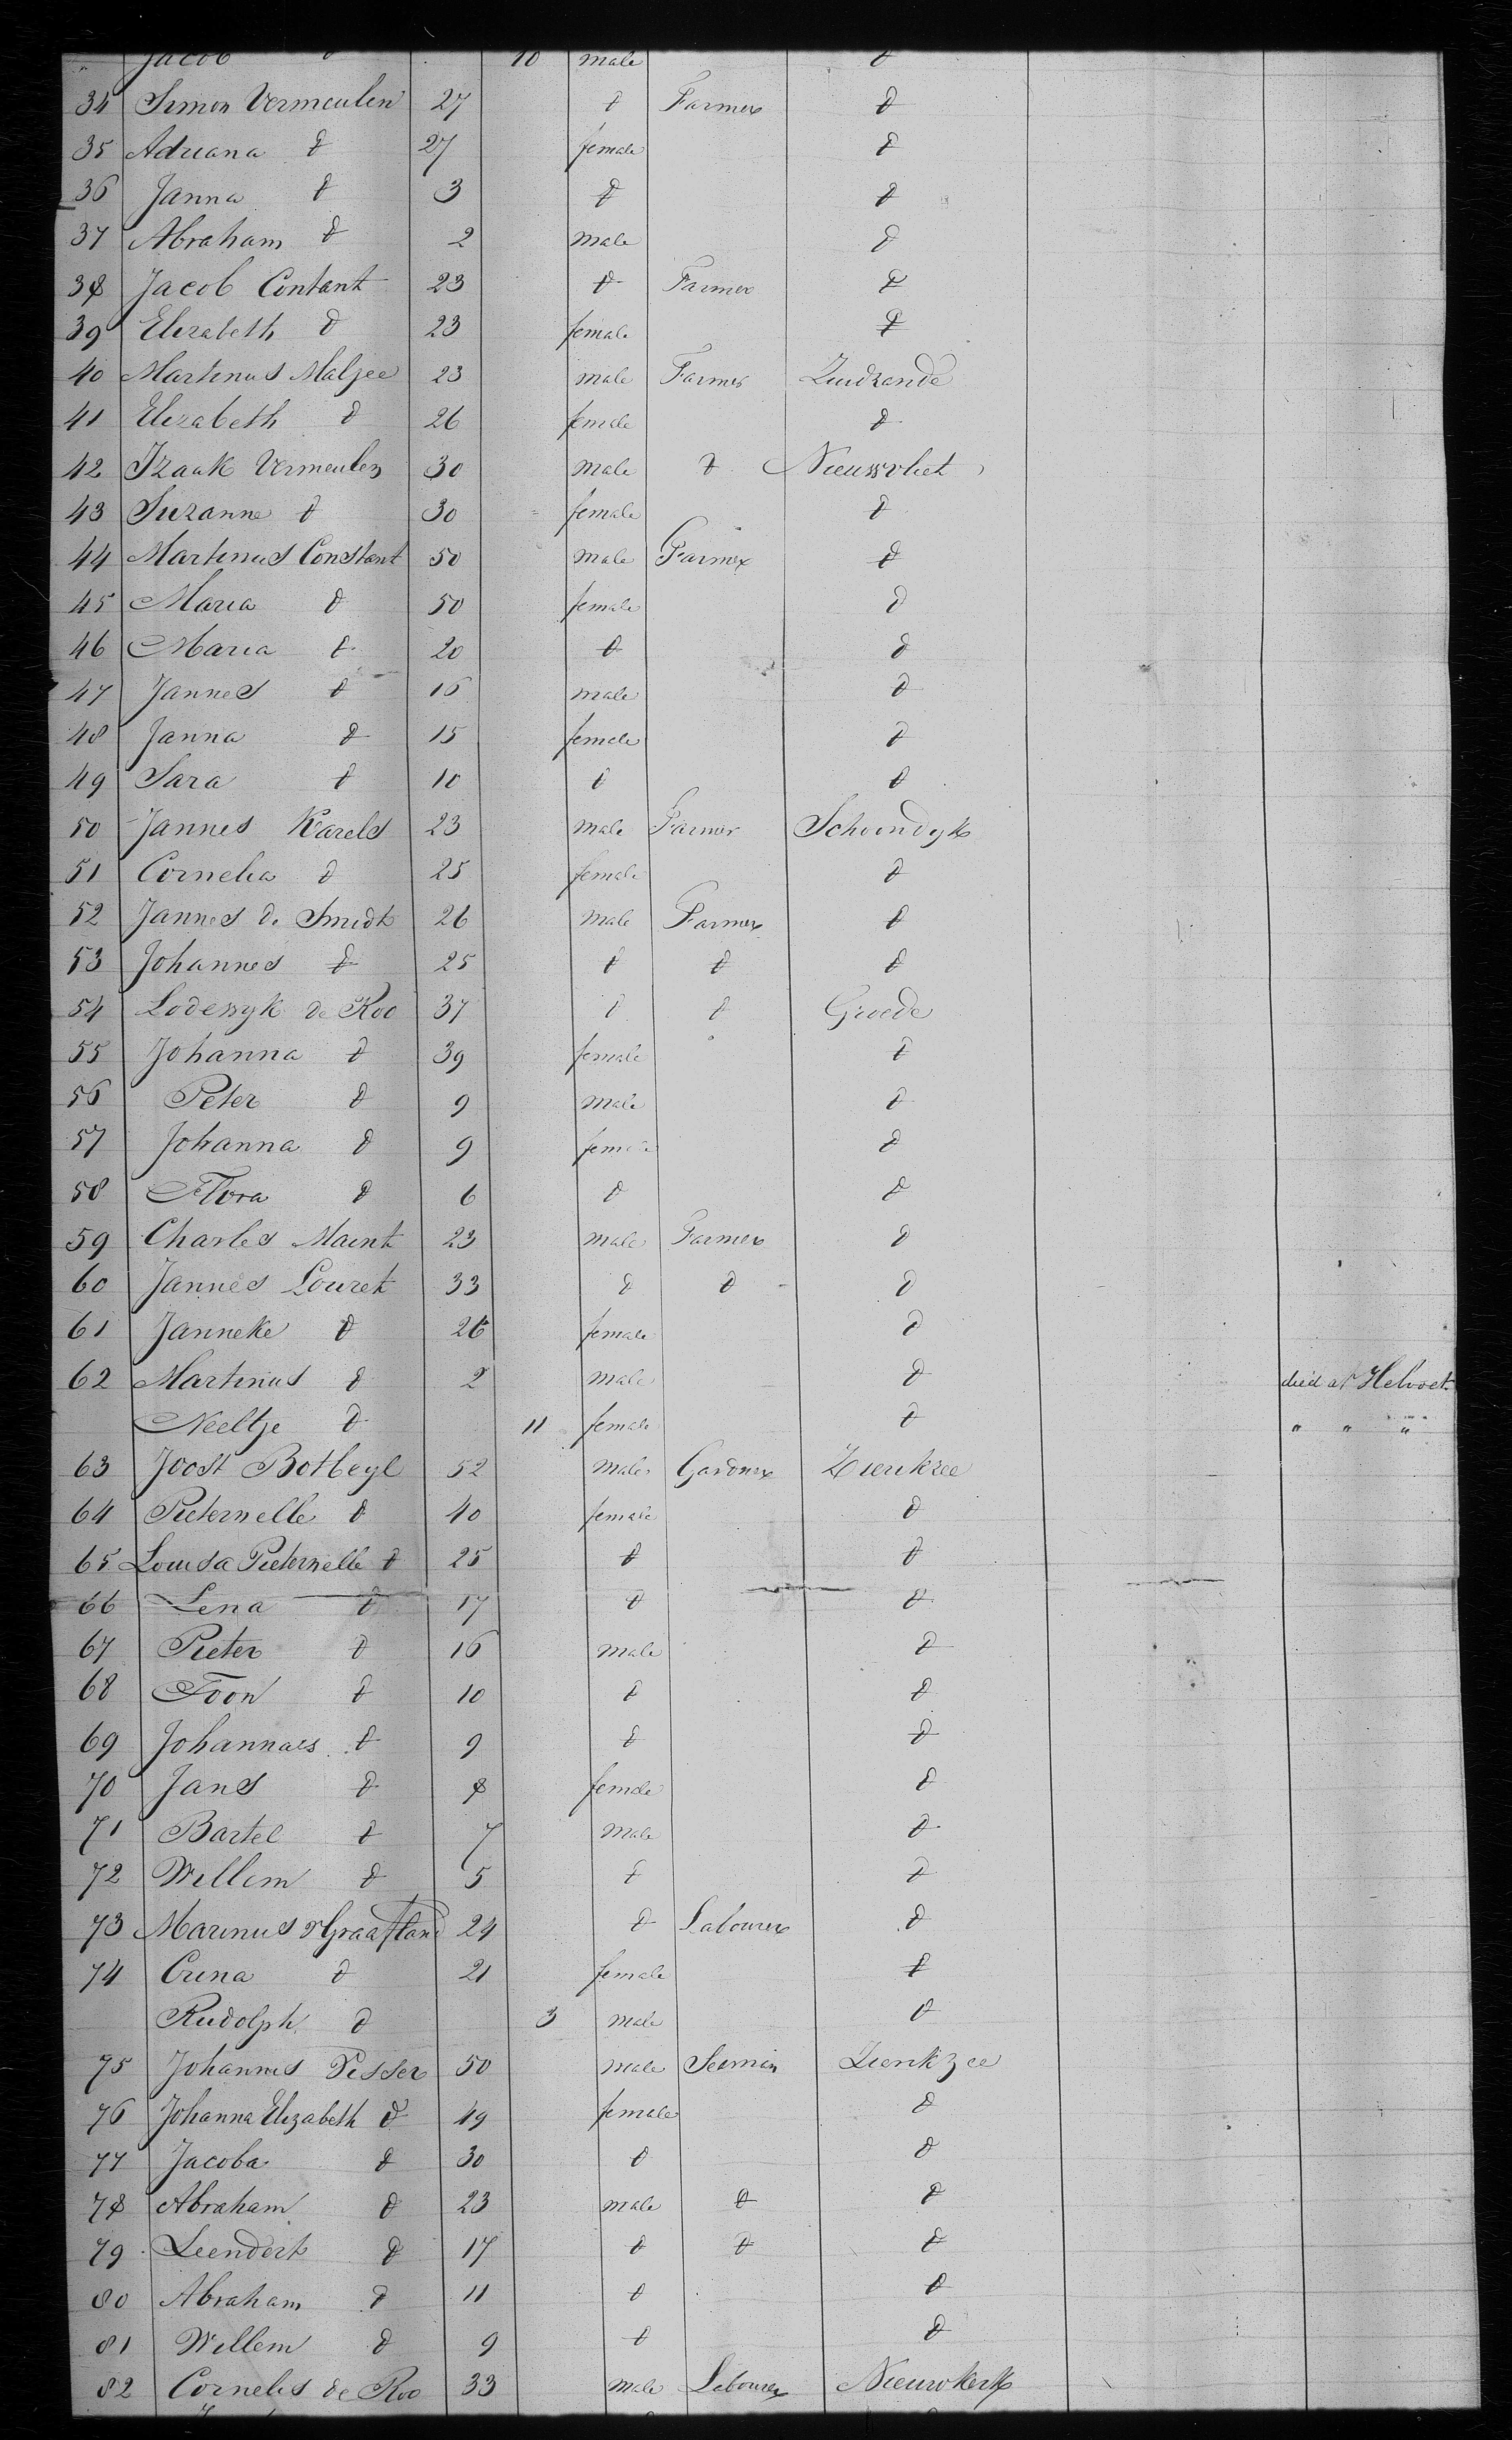 Jacob d 10 male d
34 Simon Vermeulen 27 d Farmer d
35 Adriana d 27 female d
36 Janna d 3 d d
37 Abraham d 2 male d
38 Jacob Contant 23 d Farmer d
39 Elizabeth d 23 female d
40 Martinus Maljee 23 male Farmer Zuidzande
41 Elizabeth d 26 female d
42 Izaak Vermeulen 30 male d Nieuwvliet
43 Suzanne d 30 female d
44 Martinus Constant 50 male Farmer d
45 Maria d 50 female d
46 Maria d 20 d d
47 Jannes d 16 male d
48 Janna d 15 female d
49 Sara d 10 d d
50 Jannes Karels 23 male Farmer Schoondyk
51 Cornelia d 25 female d
52 Jannes de Smidt 26 male Farmer d
53 Johannes d 25 d d d
54 Lodewyk de Roo 37 d d Groede
55 Johanna d 39 female d
56 Peter d 9 male d
57 Johanna d 9 female d
58 Flora d 6 d d
59 Charles Maent 23 male Farmer d
60 Jannes Louret 33 d d d
61 Janneke d 26 female d
62 Martinus d 2 male d died at Helvoet
Neeltje d 11 female d " " "
63 Joost Botbeyl 52 male Gardner Zierikzee
64 Pieternelle d 40 female d
65 Louisa Pieternelle d 25 d d
66 Lena d 17 d d
67 Pieter d 16 male d
68 Toon d 10 d d
69 Johannaes d 9 d d
70 Jans d 8 female d
71 Bartel d 7 male d
72 Willem d 5 d d
73 Marinus s'Graafland 24 d Labourer d
74 Crina d 21 female d
Rudolph d 3 male d
75 Johannes Visser 50 male Seeman Zierikzee
76 Johanna Elizabeth d 49 female d
77 Jacoba d 30 d d
78 Abraham d 23 male d d
79 Leendert d 17 d d d
80 Abraham d 11 d d
81 Willem d 9 d d
82 Cornelis de Roo 33 male Labourer Nieuwkerk